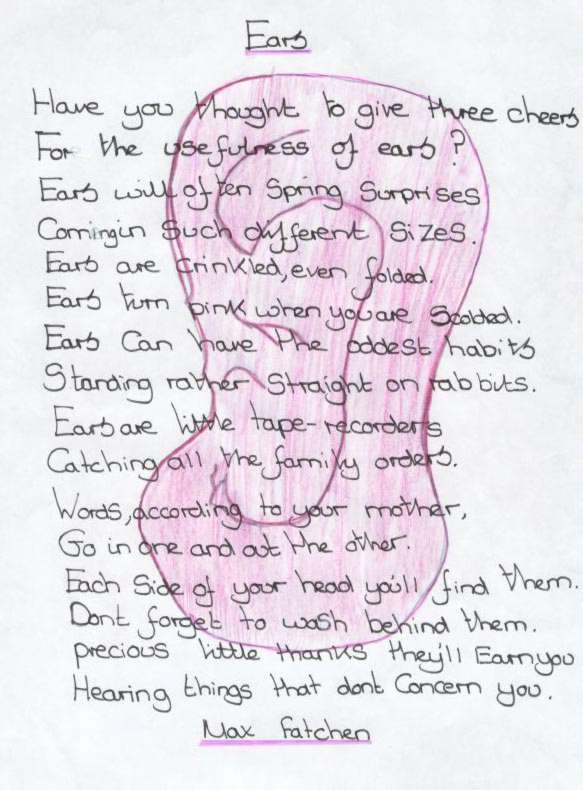 Ears
Have you thought to give three cheers
For the usefulness of ears?
Ears will often Spring Surprises
Comingin Such different Sizes.
Ears are crinkled, even folded.
Ears turn pink when you are Scolded.
Ears Can have the oddest habits
Standing rather Straight on rabbits.
Ears are little tape-recorders
Catching all the family orders.
Words, according to your mother,
Go in one and out the other.
Each Side of your head you'll find them.
Dont forget to wash behind them.
precious little thanks they'll Earn you
Hearing things that dont Concern you.
Max Fatchen